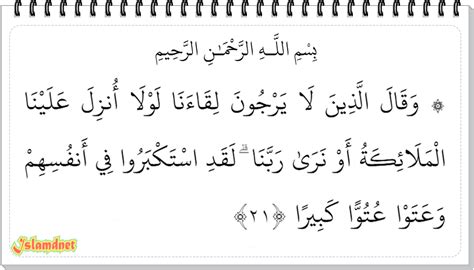 بِسْمِ اللَّـهِ الرَّحْمَـٰنِ الرَّحِيمِ
۞ وَقَالَ الَّذِينَ لَا يَرْجُونَ لِقَاءَنَا لَوْلَا أُنزِلَ عَلَيْنَا
الْمَلَائِكَةُ أَوْ نَرَىٰ رَبَّنَا ۗ لَقَدِ اسْتَكْبَرُوا فِي أَنفُسِهِمْ
وَعَتَوْا عُتُوًّا كَبِيرًا ﴿٢١﴾
Islamdnet